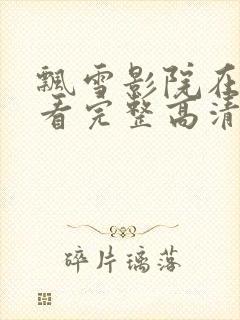 飘雪影院在
看完整高清
碎片璃落